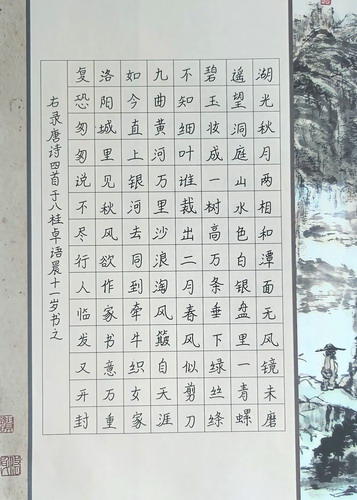 湖光秋月两相和潭面无风镜未磨
遥望洞庭山水色白银盘里一青螺
碧玉妆成一树高万条垂下绿丝绦
不知细叶谁裁出二月春风似剪刀
九曲黄河万里沙浪淘风簸自天涯
如今直上银河去同到牵牛织女家
洛阳城里见秋风欲作家书意万重
复恐匆匆说不尽行人临发又开封
右录唐诗四首于八桂卓语晨十一岁书之